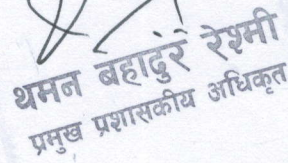 थमन बहादुर रेश्मी
प्रमुख प्रशासकीय अधिकृत